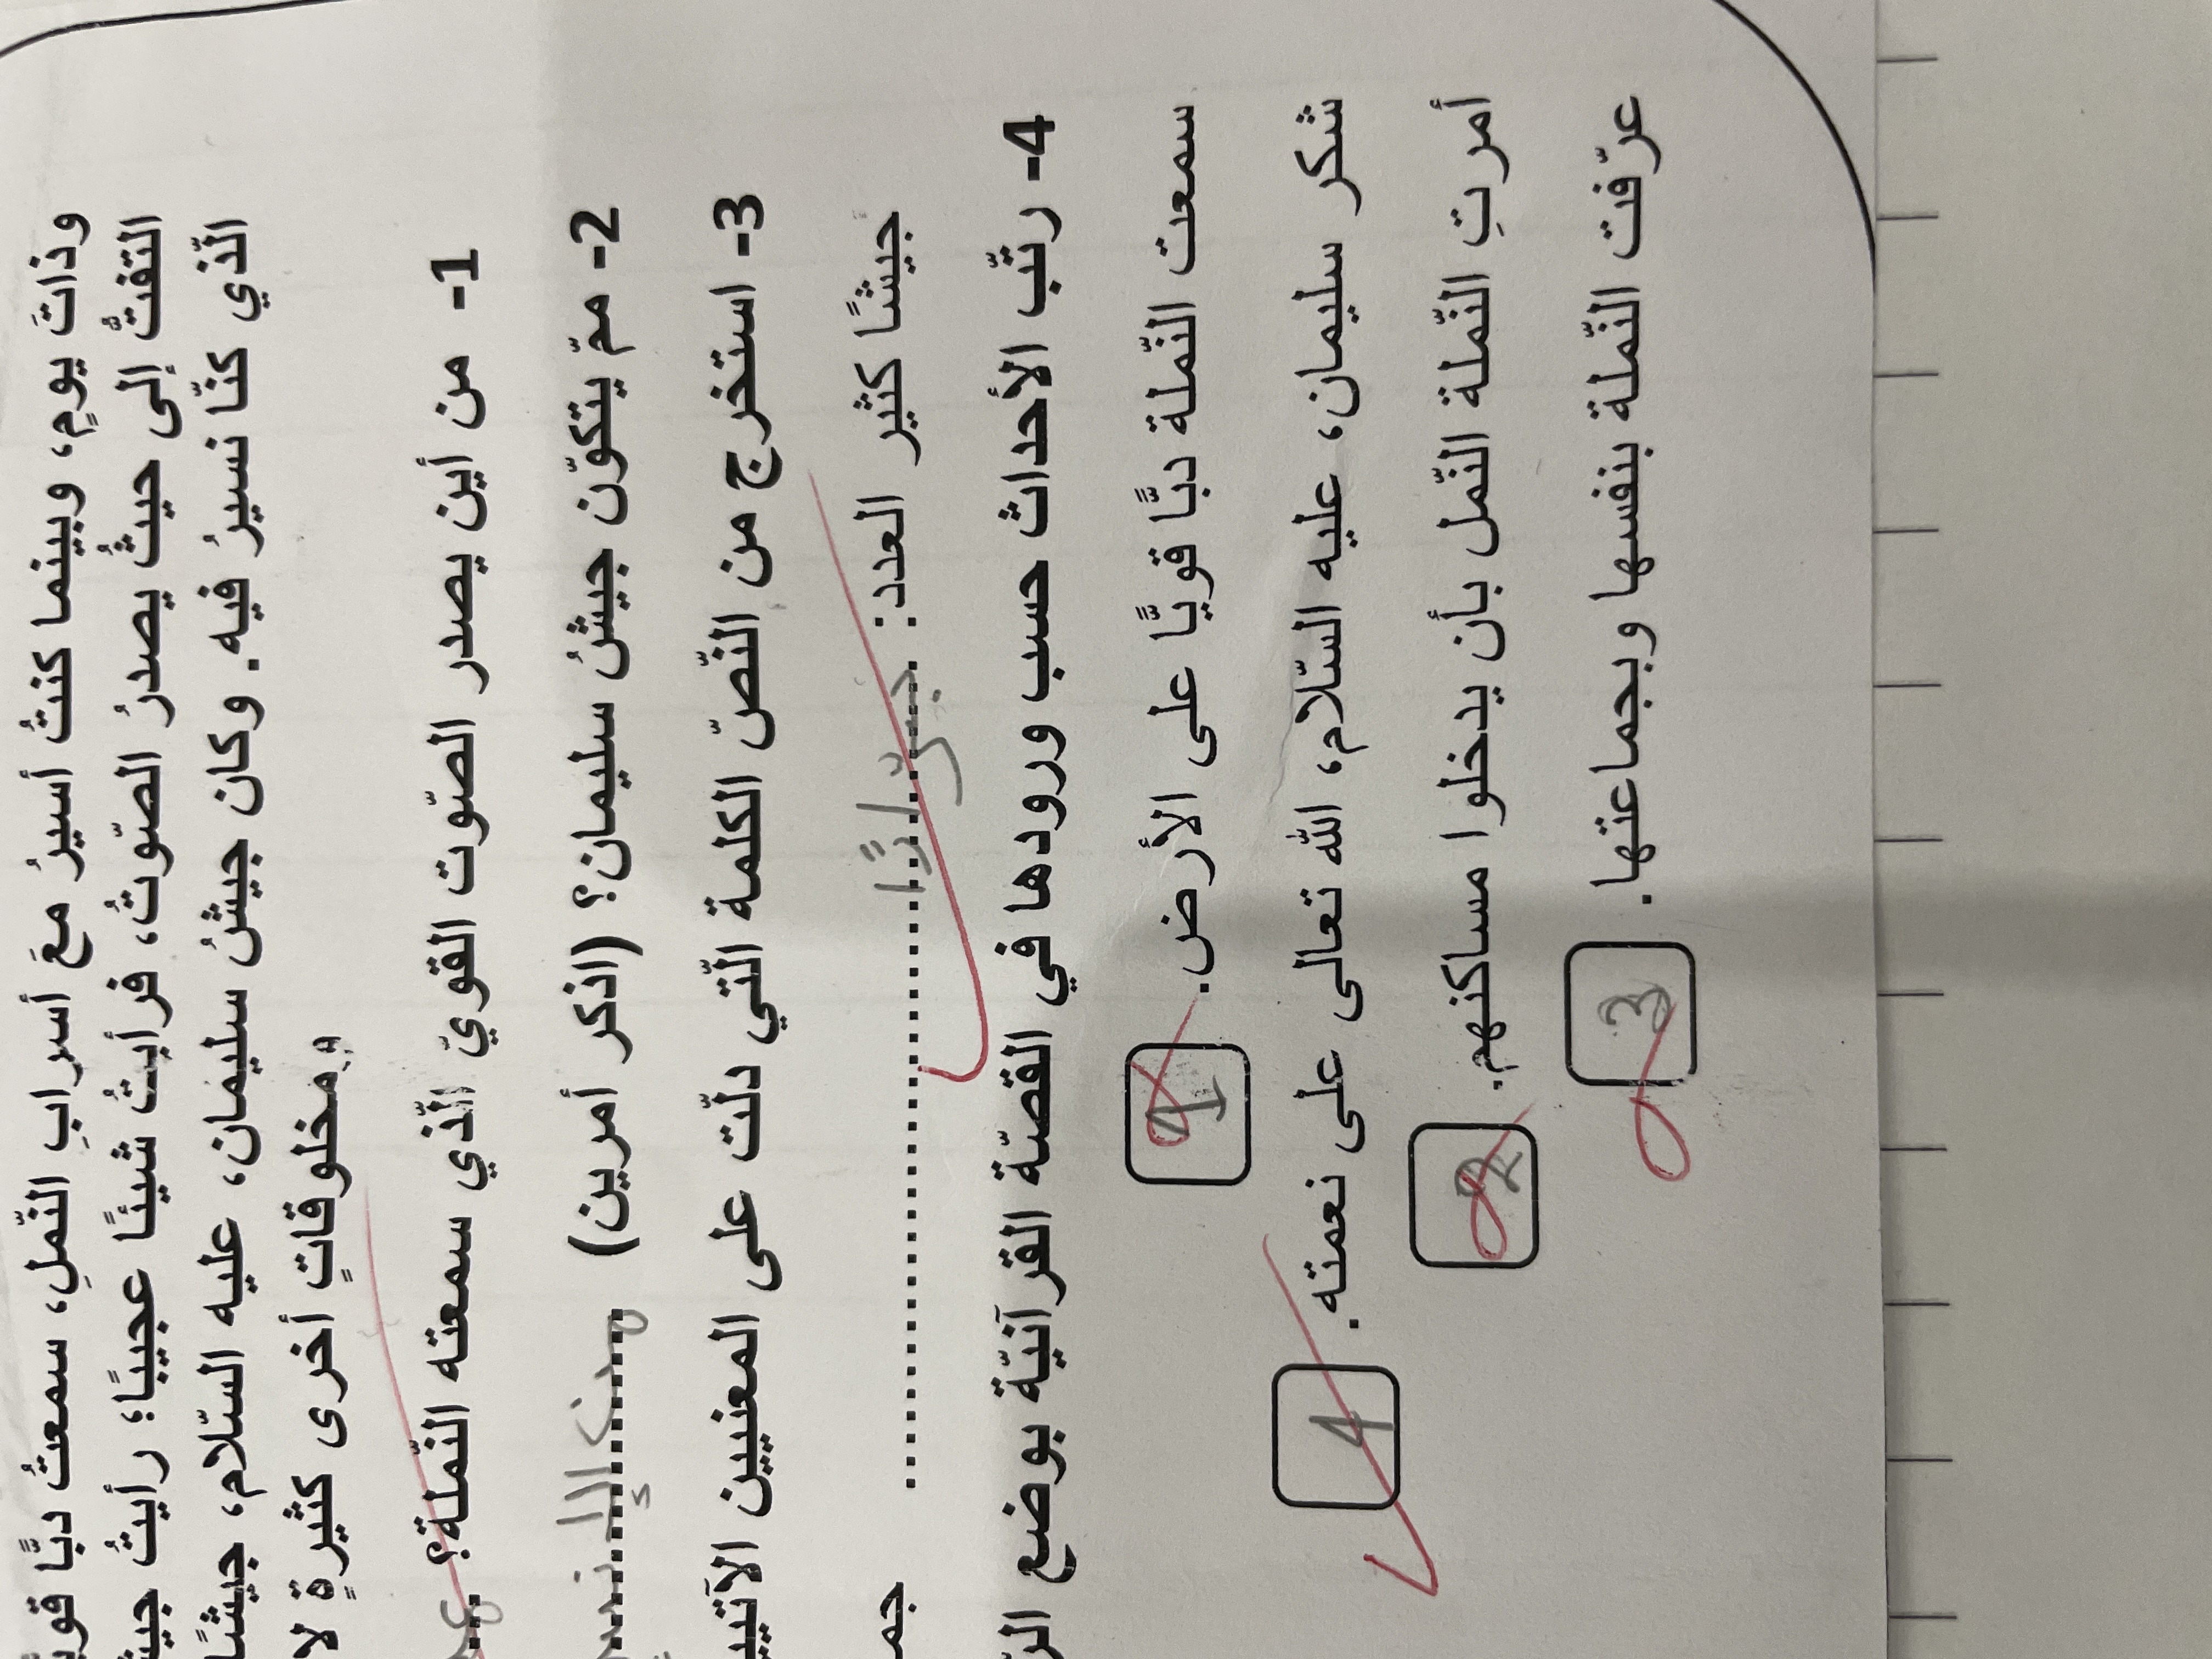 وذاتَ يومٍ، وبينما كنتُ أسيرُ معَ أسرابِ النّملِ، سمعتُ دبًّا
التفتُّ إلى حيثُ يصدرُ الصّوتُ، فرأيتُ شيئًا عجيبًا؛ رأيتُ
الّذي كنّا نسيرُ فيه. وكان جيشُ سليمان، عليه السّلام، جيشًا
ومخلوقاتٍ أخرى كثيرةٍ لا
1- من أين يصدر الصّوت القويّ الّذي سمعته النّملة؟
2- ممّ يتكوّن جيشُ سليمان؟ (اذكر أمرين)
3- استخرج من النّصّ الكلمة الّتي دلّت على المعنيين
جيشًا كثير العدد: جرّارًا
4- رتّب الأحداث حسب ورودها في القصّة القرآنيّة بوضع
سمعت النّملة دبًّا قويًّا على الأرض. 1
شكر سليمان، عليه السّلام، الله تعالى على نعمته. 4
أمرتِ النّملة النّمل بأن يدخلوا مساكنهم. 2
عرّفت النّملة بنفسها وبجماعتها. 3